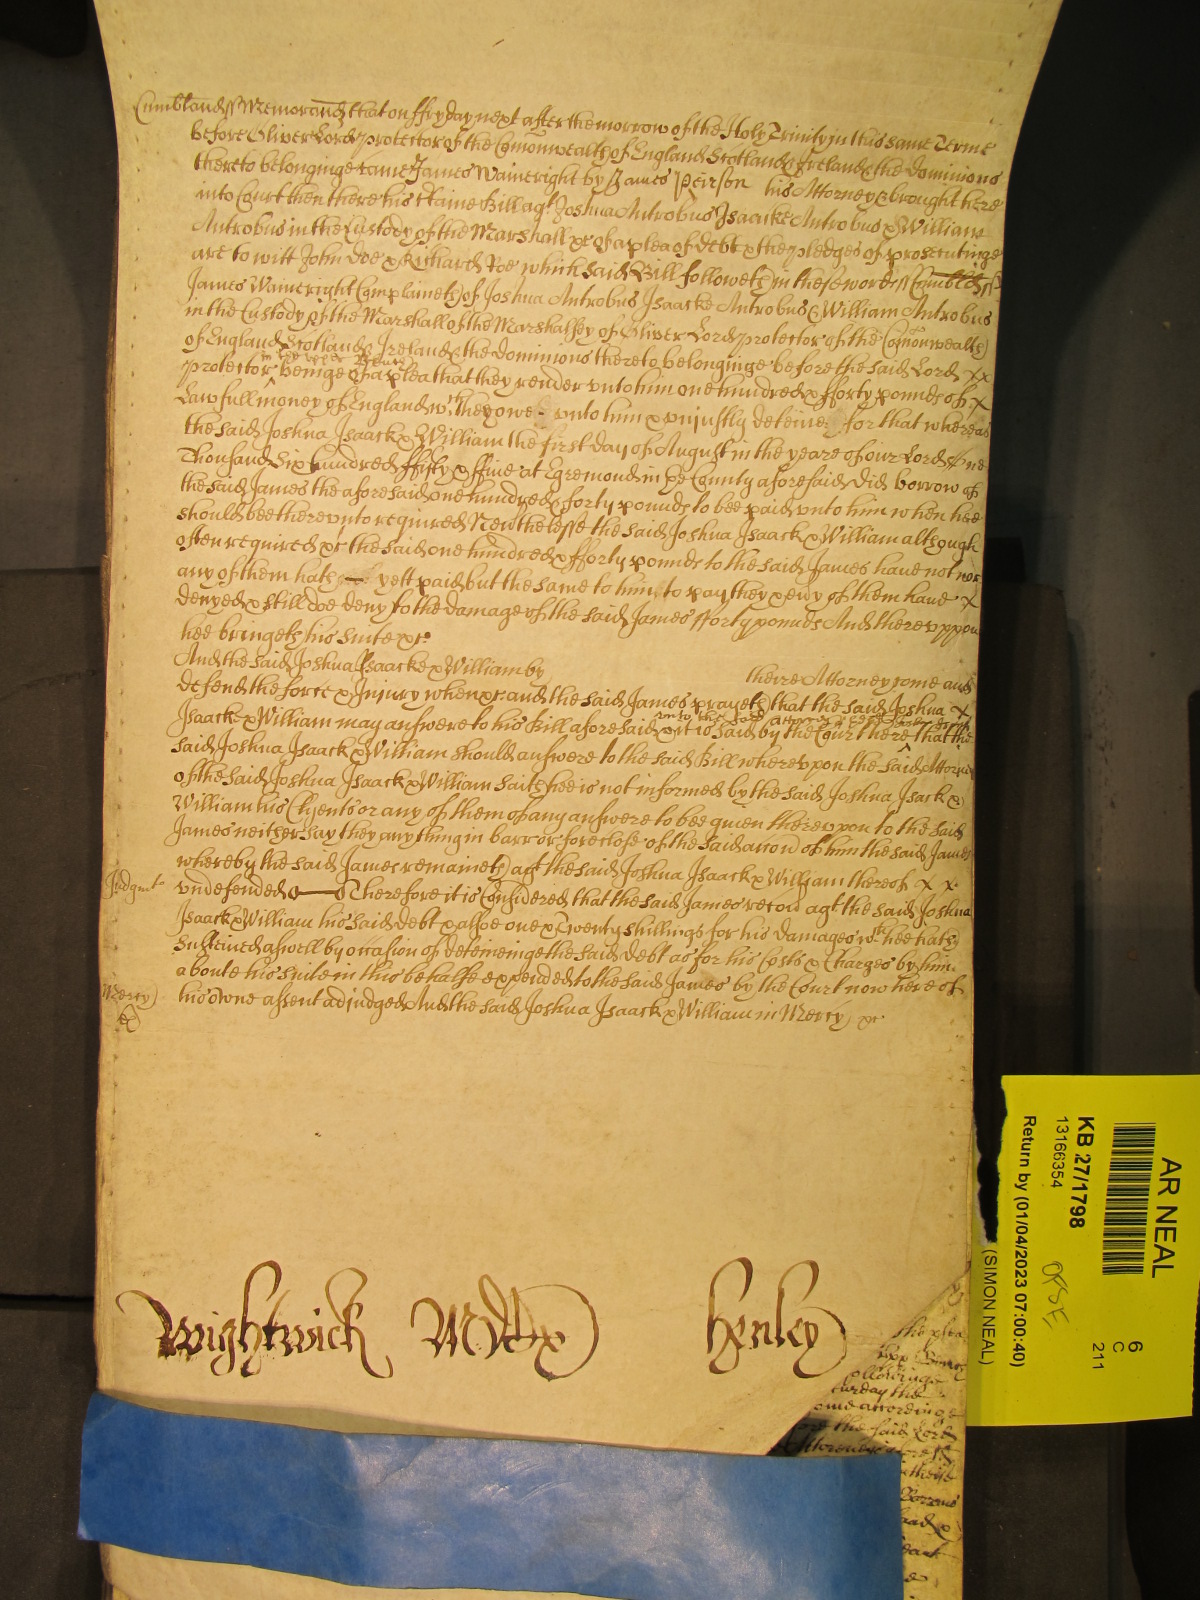 Cumbland ss Memorand that on ffryday next after the morrow of the Holy Trinity in this same Terme
before Oliver Lord protector of the Comonwealth of England Scotland & Ireland & the dominions
thereto belonginge came James Wainwright by James Peirson his Attorney & brought here
into Court then there his Certaine Bill agt Joshua Antrobus Isaacke Antrobus & William
Antrobus in the Custody of the Marshall &c of a plea of debt & the pledges of prosecutinge
are to witt John Doe & Richard Roe which said Bill followeth in these words ss Cumbld ss
James Wainwright Complaineth of Joshua Antrobus Isaacke Antrobus & William Antrobus
in the Custody of the Marshall of the Marshalsey of Oliver Lord protector of the Comonwealth
of England Scotland & Ireland & the dominions thereto belonginge before the said Lord x x
in the upper Bench
protector beinge of a plea that they render unto him one hundred & fforty pounds of x
Lawfull money of England wch they owe unto him & unjustly deteine for that whereas
the said Joshua Isaack & William the first day of August in the yeare of our Lord One
Thousand Six hundred ffifty & ffive at Egremond in ye County aforesaid did borrow of
the said James the aforesaid one hundred & forty pounds to bee paid unto him when hee
should bee thereunto required Neverthelesse the said Joshua Isaack & William although
often required &c the said one hundred & fforty pounds to the said James have not nor
any of them hath yett paid but the same to him to pay they & every of them have x
denyed & still doe deny to the damage of the said James fforty pounds And thereuppon
hee bringeth his suite &c
And the said Joshua Isaacke & William by theire Attorney come and
defend the force & Injury when &c and the said James prayeth that the said Joshua x
Isaack & William may answere to his Bill aforesaid &c it is said by the Court here that the
unto the said attorney
said Joshua Isaack & William should answere to the said Bill whereupon the said Attorney
of the said Joshua Isaack & William saith hee is not informed by the said Joshua Isack &
William his Clyents or any of them of any answere to bee given thereupon to the said
James neither say they any thing in barr or foreclose of the said accion of him the said James
whereby the said James remaineth agt the said Joshua Isaack & William thereof x x
Judgmt
undefended Therefore it is Considered that the said James recov agt the said Joshua
Isaack & William his said debt & alsoe one & Twenty shillings for his damages wch hee hath
Susteined aswell by occasion of deteineinge the said debt as for his Costs & Charges by him
about his suite in this behalfe expended to the said James by the Court now here of
Mercy
his owne assent adjudged And the said Joshua Isaack & William in Mercy &c
Wightwick Henley
the plea
followinge
turday the
ome accordinge
ore the said Lord
Attorney
AR NEAL
6
C
211
KB 27/1798
13166354
OFSE
Return by (01/04/2023 07:00:40)
(SIMON NEAL)